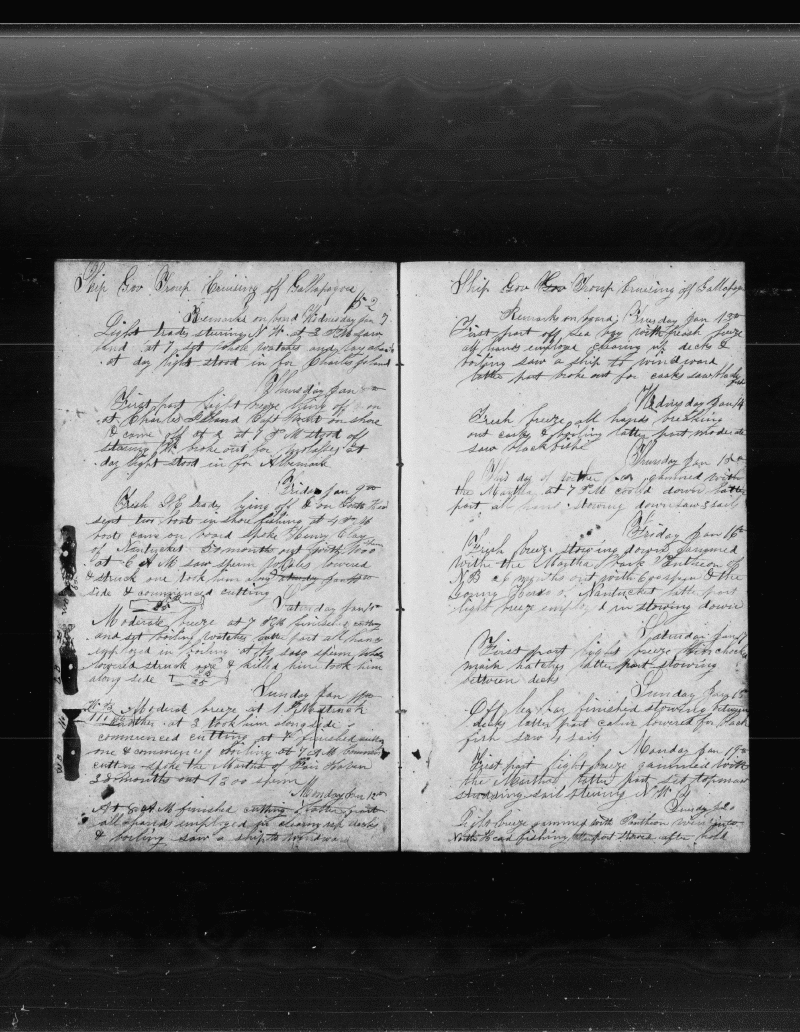 Ship Gov Troup Cruising of Gallapagos
52
Remarks on board Wednesday Jan 7
Light trades stering N W. at 2 PM saw
land at 7 set whole watches and lay aback
at day light stood in for Charles Island
Thursday Jan 8th
First part light breze lying off & on
at Charles Island Capt went on shore
& came off at 2 at 7 P M stood off
stering W. broke out for
day light stood in for Albemarle
Friday Jan 9th
Fresh S E trades lying of & on North Head
sept two boats in shore fishing at 4 P M
boats came on board Spoke Henry Clay
of Nantucket months out with
at 6 A M saw sperm whales lowered
& struck one took him along
side & commenced cutting
25
Saturday Jan 10th
Moderate breeze at 7 P M finished cutting
and set boiling watches latter part all hands
employed in boiling at 10 saw sperm whales
lowered struck one & killed him took him
along side 25
Sunday Jan 11th
Moderate breeze at 1 P M struck
another at 3 took him along side
commenced cutting at 7 finished cutting
one & commenced boiling at 7 A M commenced
cutting spoke the Martha of Fair Haven
28 months out 1300 sperm
Monday Jan 12th
At 6 A M finished cutting latter part
all hands employed in clearing up decks
& boiling saw a ship to windward
Ship Gov Troup Cruising off Gallapagos
Remarks on board Tuesday Jan 13th
First part off sea boy with fresh breeze
all hands employed clearing up decks &
boiling saw a ship to windward
latter part broke out for casks saw black
fish
Wednesday Jan 14
Fresh breeze all hands breaking
out casks & boiling latter part moderate
saw blackfish
Thursday Jan 15th
This day of wether gammed with
the Martha at 7 P M cooled down latter
part all hands stowing down saw 3 sails
Friday Jan 16th
Fresh breeze stowing down gammed
with the Martha Bark Pantheon of
N B 6 months out with & the
of Nantucket latter part
light breeze employed in stowing down
Saturday Jan 17
First part light breeze
main hatches latter part stowing
between decks
Sunday Jany 18
Off finished stowing between
decks latter part calm lowered for black
fish saw 4 sails
Monday Jan 19th
First part light breeze gammed with
the Martha latter part set topmast
studding sail stering N W
Tuesday Ja 20
Light breeze gammed with Pantheon went into
North Head fishing latter part stowed after hold